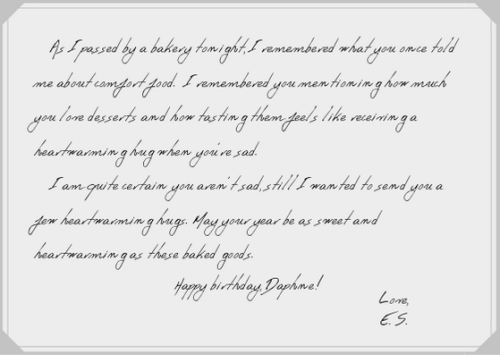 As I passed by a bakery tonight, I remembered what you once told
me about comfort food. I remembered you mentioning how much
you love desserts and how tasting them feels like receiving a
heartwarming hug when you're sad.
I am quite certain you aren't sad, still I wanted to send you a
few heartwarming hugs. May your year be as sweet and
heartwarming as these baked goods.
Happy birthday, Daphne!
Love,
E. S.